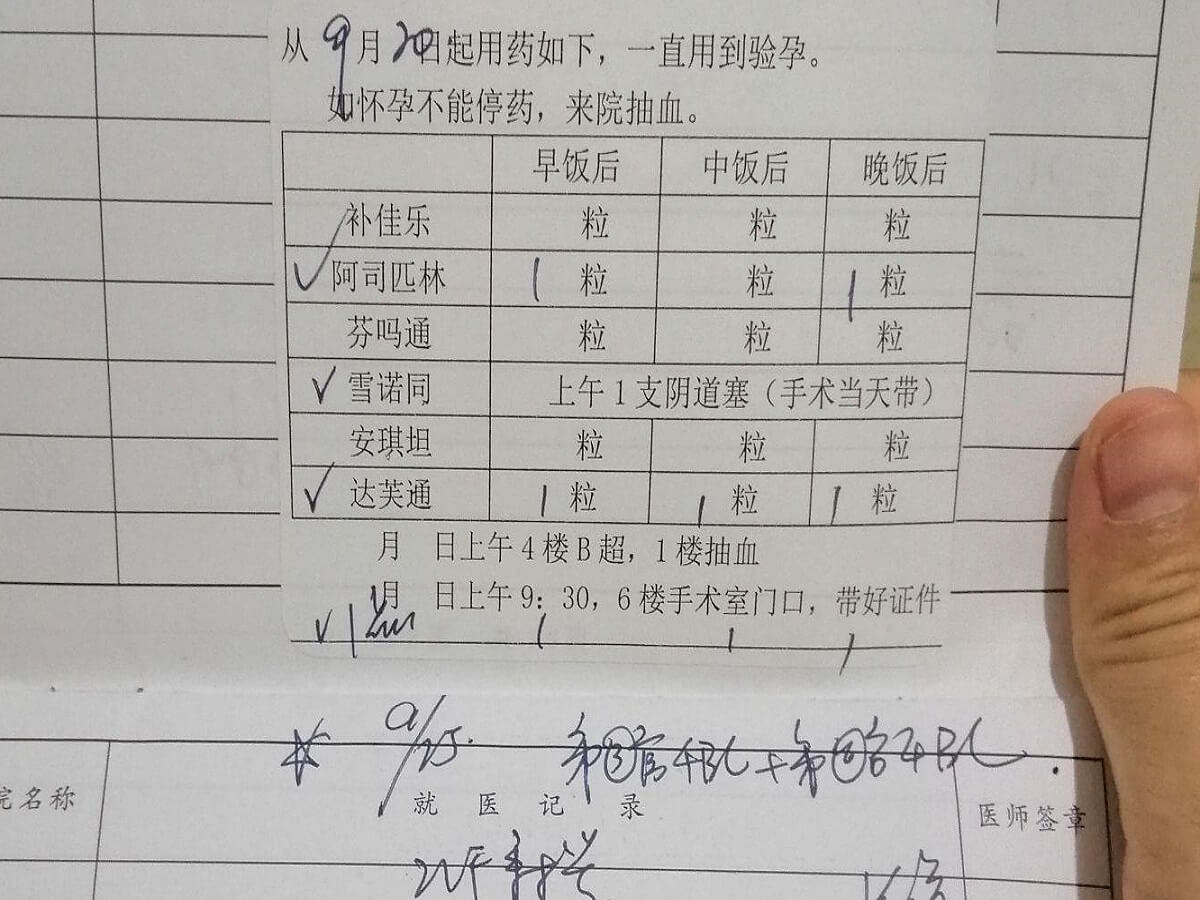 从9月20日起用药如下，一直用到验孕。
如怀孕不能停药，来院抽血。
早饭后 中饭后 晚饭后
补佳乐 粒 粒 粒
√ 阿司匹林 1 粒 粒 1 粒
芬吗通 粒 粒 粒
√ 雪诺同 上午1支阴道塞（手术当天带）
安琪坦 粒 粒 粒
√ 达芙通 1 粒 1 粒 1 粒
月 日上午4楼B超，1楼抽血
月 日上午9：30，6楼手术室门口，带好证件
√ 1 1 1
9/25.
院名称 就医记录 医师签章